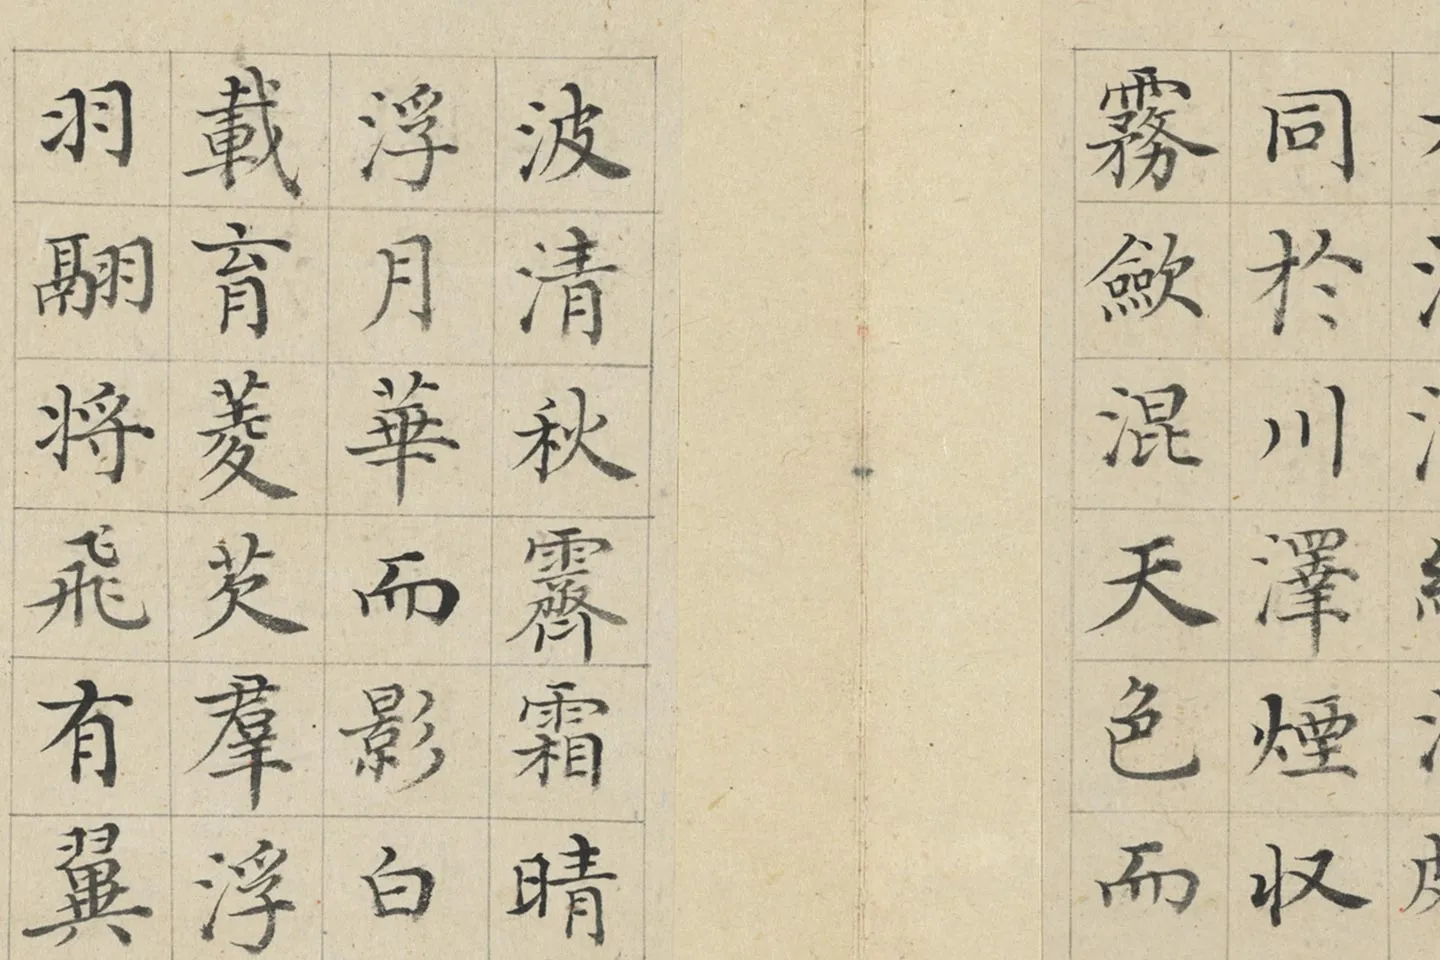 同於川澤煙収
霧歛混天色而
波清秋霽霜晴
浮月華而影白
載育菱芡羣浮
羽翮将飛有翼